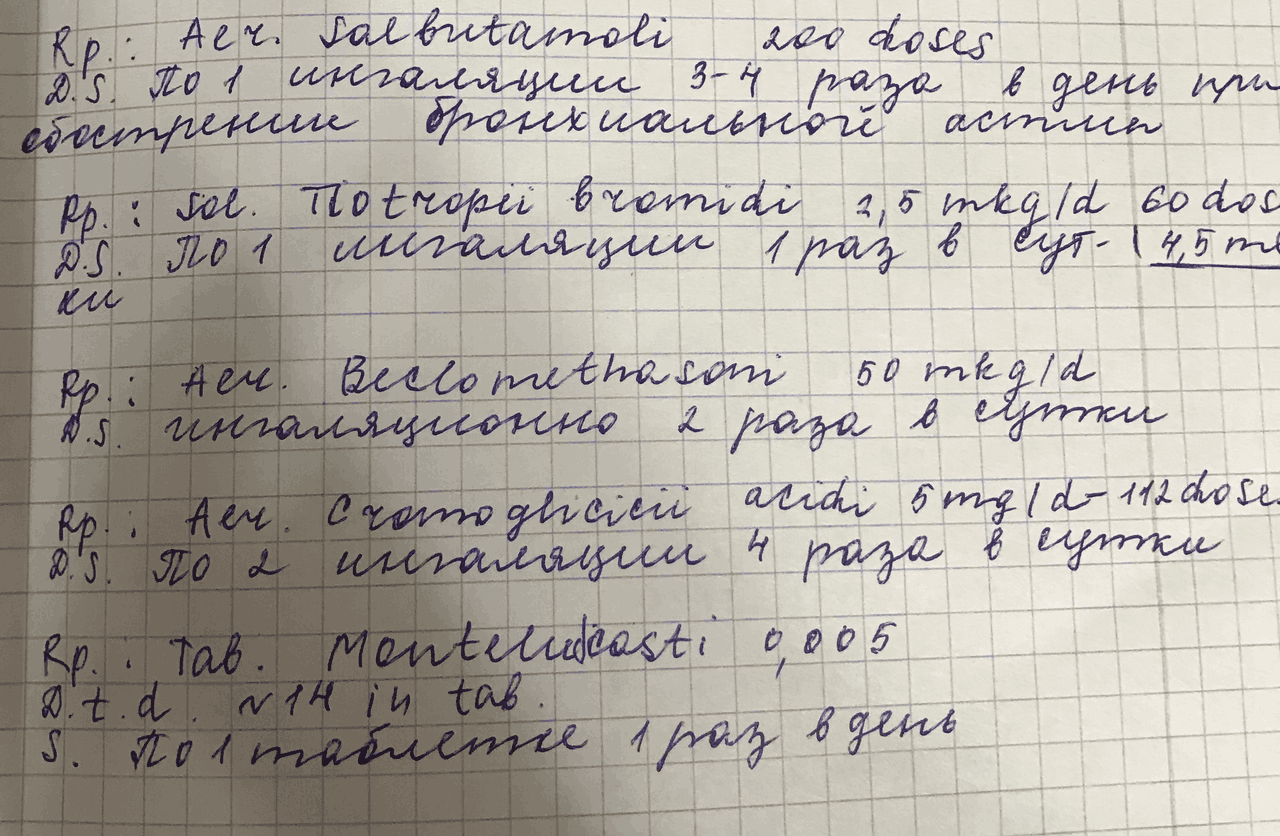 Rp.: Aer. Salbutamoli 200 doses
D.S. По 1 ингаляции 3-4 раза в день при
обострении бронхиальной астмы
Rp.: Sol. Tiotropii bromidi 2,5 mkg/d 60 dos
D.S. По 1 ингаляции 1 раз в сут- (4,5 m
ки
Rp.: Aer. Beclomethasoni 50 mkg/d
D.S. ингаляционно 2 раза в сутки
Rp.: Aer. Cromoglicicii acidi 5 mg/d-112 dose
D.S. По 2 ингаляции 4 раза в сутки
Rp.: Tab. Montelukasti 0,005
D.t.d. N 14 in tab.
S. По 1 таблетке 1 раз в день